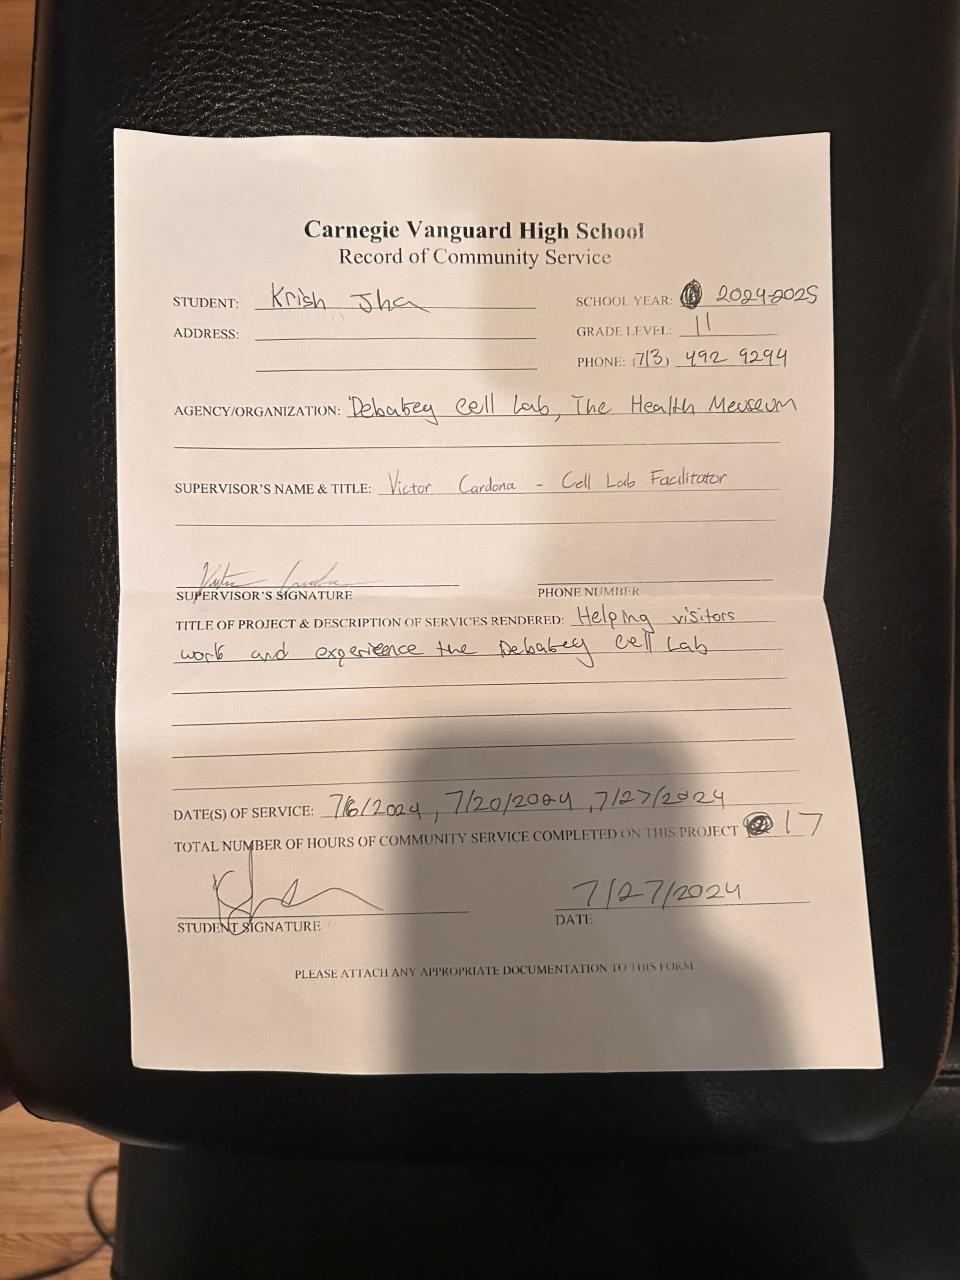 Carnegie Vanguard High School
Record of Community Service
STUDENT: Krish Jha
SCHOOL YEAR: 2024-2025
ADDRESS:
GRADE LEVEL: 11
PHONE: (713) 492 9294
AGENCY/ORGANIZATION: Debabey Cell Lab, The Health Meuseum
SUPERVISOR'S NAME & TITLE: Victor Cardona - Cell Lab Facilitator
SUPERVISOR'S SIGNATURE
PHONE NUMBER
TITLE OF PROJECT & DESCRIPTION OF SERVICES RENDERED: Helping visitors
work and experience the Debabey Cell Lab
DATE(S) OF SERVICE: 7/6/2024, 7/20/2024, 7/27/2024
TOTAL NUMBER OF HOURS OF COMMUNITY SERVICE COMPLETED ON THIS PROJECT 17
7/27/2024
STUDENT SIGNATURE
DATE
PLEASE ATTACH ANY APPROPRIATE DOCUMENTATION TO THIS FORM